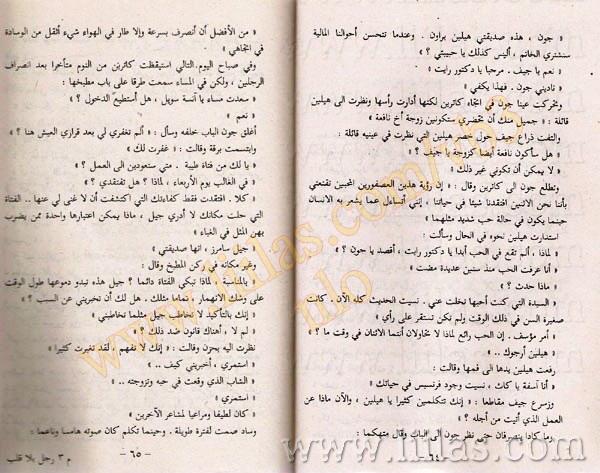 « جون ، هذه صديقتي هيلين براون . وعندما تتحسن أحوالنا المالية
سنشتري الخاتم ، أليس كذلك يا حبيبتي ؟ »
« نعم يا جيف . مرحبا يا دكتور رايت »
« ناديني جون . فهذا يكفي »
وتحركت عينا جون في اتجاه كاثرين لكنها أدارت رأسها ونظرت الى هيلين
قائلة : « جميل منك أن تحضري ستكونين زوجة أخ نافعة »
والتفت ذراع جيف حول خصر هيلين التي نظرت في عينيه قائلة :
« هل سأكون نافعة أيضا كزوجة يا جيف ؟ »
« لا يمكن أن تكوني غير ذلك »
وتطلع جون الى كاثرين وقال : « إن رؤية هذين العصفورين المحبين تقنعني
بأننا نحن الاثنين افتقدنا شيئا في حياتنا ، إنني أتساءل عما يشعر به الانسان
حينما يكون في حالة حب شديد مثلهما »
استدارت هيلين نحوه في الحال وسألت :
« لماذا ، ألم تقع في الحب أبدا يا دكتور رايت ، أقصد يا جون ؟ »
« أنا عرفت الحب منذ سنين عديدة مضت »
« ماذا حدث ؟ »
« السيدة التي كنت أحبها تخلت عني . نسيت الحديث كله الآن . كانت
صغيرة السن في ذلك الوقت ولم تكن تستقر على رأي »
« أمر مؤسف . إن الحب رائع لماذا لا تحاولان أنتما الاثنان في وقت ما ؟ »
« هيلين أرجوك .. »
رفعت هيلين يدها الى فمها وقالت :
« أنا آسفة يا كات ، نسيت وجود فرنسيس في حياتك »
وزسرع جيف مقاطعا : « إنك تتكلمين كثيرا يا هيلين ، والآن ماذا عن
العمل الذي أتيت من أجله ؟ »
وما كادا ينصرفان حتى نظر جون الى الباب وقال متهكما :
- ٦٤ -
« من الأفضل أن أنصرف بسرعة وإلا طار في الهواء شيء أثقل من الوسادة
في اتجاهي »
وفي صباح اليوم التالي استيقظت كاثرين من النوم متأخرا بعد انصراف
الرجلين ، ولكن في المساء سمعت طرقا على باب مطبخها :
« سعدت مساء يا آنسة سويل ، هل أستطيع الدخول ؟ »
« نعم »
أغلق جون الباب خلفه وسأل : « ألم تغفري لي بعد قراري العيش هنا ؟ »
وابتسمت برقة وقالت : « غفرت لك »
« يا لك من فتاة طيبة . متى ستعودين الى العمل ؟ »
« في الغالب يوم الأربعاء ، لماذا ؟ هل تفتقدني ؟ »
« كلا . افتقدت فقط كفاءتك التي اكتشفت أن لا غنى لي عنها .. الفتاة
التي حلت مكانك لا أدري جيل ، ماذا يمكن اعتبارها واحدة ممن يضرب
بهن المثل في الغباء »
« جيل سامرز ، انها صديقتي »
وغير مكانه في ركن المطبخ وقال :
« بالمناسبة ، لماذا تبكي الفتاة دائما ؟ جيل هذه تبدو دموعها طول الوقت
على وشك الانهمار ، تماما مثلك . هل لك أن تخبريني عن السبب ؟ »
« إنك بالتأكيد لا تخاطب جيل مثلما تخاطبني »
« لم لا ، أهناك قانون ضد ذلك ؟ »
نظرت اليه بحزن وقالت : « إنك لا تفهم ، لقد تغيرت كثيرا »
« استمري ، أخبريني كيف .. »
« الشاب الذي وقعت في حبه وتزوجته .. »
« استمري »
« كان لطيفا ومراعيا لمشاعر الآخرين »
وساد صمت لفترة طويلة . وحينما تكلم كان صوته هامسا وناعما :
- ٦٥ -
م ٣ رجل بلا قلب
www.liilas.com
www.liilas.com/vb3
nlo